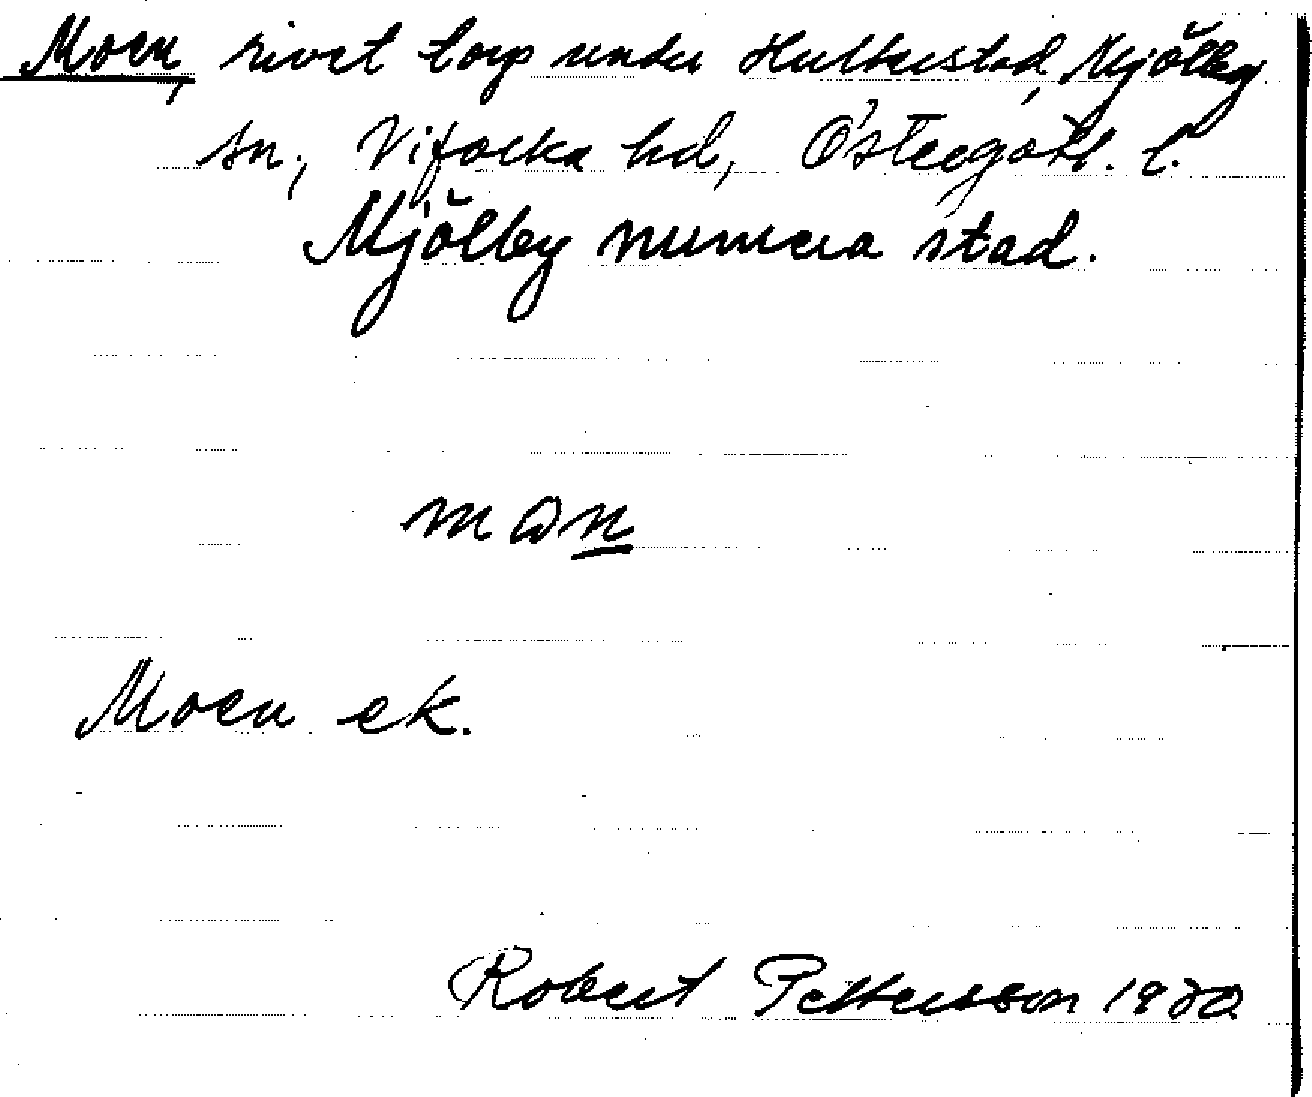 Moen, rivet torp under Hulterstad, Mjölby
sn, Vifolka hd, Östergötl. l.
Mjölby numera stad.
Moen ek.
Robert Pettersson 1920